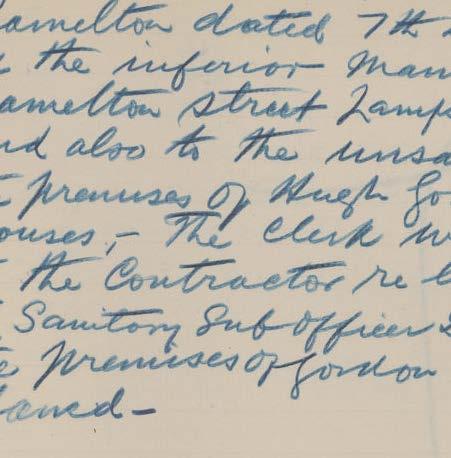 amelton dated 7th
the inferior Man
amelton street Lamps
nd also to the unsa
premises of Hugh Go
ouses,- The Clerk w
the Contractor re l
Sanitory Sub Officer
premises of Gordon
amed-